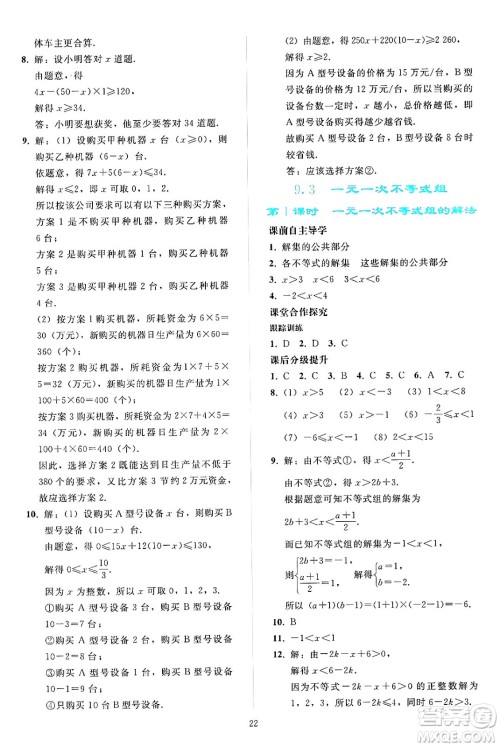 体车主更合算.
8. 解：设小明答对 x 道题.
由题意，得
4x－(50－x)×1≥120.
解得 x≥34.
答：小明要想获奖，他至少要答对 34 道题.
9. 解：(1) 设购买甲种机器 x 台(x≥0)，则
购买乙种机器(6－x)台.
由题意，得 7x＋5(6－x)≤34.
解得 x≤2.
所以按该公司要求可以有以下三种方案：
方案 1 是不购买甲种机器，购买乙种机器
6 台；
方案 2 是购买甲种机器 1 台，购买乙种机器
5 台；
方案 3 是购买甲种机器 2 台，购买乙种机器
4 台.
(2) 按方案 1 购买机器，所耗资金为 6×5＝
30(万元)，新购买机器日生产量为 6×60＝
360(个)；
按方案 2 购买机器，所耗资金为 1×7＋5×
5＝32(万元)，新购买机器日生产量为 1×
100＋5×60＝400(个)；
按方案 3 购买机器，所耗资金为 2×7＋4×
5＝34(万元)，新购买机器日生产量为 2×
100＋4×60＝440(个).
因此，选择方案 2 既能达到日生产量不低于
380 个的要求，又比方案 3 节约 2 万元资金，
故应选择方案 2.
10. 解：(1) 设购买 A 型号设备 x 台，则购买 B
型号设备(10－x)台.
由题意，得 0≤15x＋12(10－x)≤130.
解得 0≤x≤10/3.
因为 x 为整数，所以 x 取 0，1，2，3.
①购买 A 型号设备 3 台，购买 B 型号设备
10－3＝7(台)；
②购买 A 型号设备 2 台，购买 B 型号设备
10－2＝8(台)；
③购买 A 型号设备 1 台，购买 B 型号设备
10－1＝9(台)；
④只购买 10 台 B 型号设备.
(2) 由题意，得 40x＋30(10－x)≥316.
解得 x≥1.6.
因为 A 型号设备的价格为 15 万元/台，B 型
号设备的价格为 12 万元/台，所以购买的设
备台数一定时，x 越小，越省钱.
故购买 A 型号设备 2 台，B 型号设备 8 台时
较省钱.
答：应该选择方案②.
9.3 一元一次不等式组
第 1 课时 一元一次不等式组的解法
课前自主导学
1. 解集的公共部分
2. 各不等式的解集 这些解集的公共部分
3. x＞3 x＜1 1＜x＜3 无解
4. －2＜x＜4
课堂合作探究
跟踪训练
1. D 2. D 3. C 4. B
课后分级提升
1. C 2. C 3. B 4. C 5. C 6. A 7. B
8. (1) x＞3 (2) x＜－3 (3) x＞3 (4) －2/3≤
x＜1 (5) x＜－2 (6) 1＜x＜4
(7) －6≤x＜13 (8) －1≤x＜2
9. 解：由不等式①，得 x＜(a＋1)/2.
由不等式②，得 x＞2b＋3.
根据题意可知不等式组的解集为
2b＋3＜x＜(a＋1)/2.
而已知不等式组的解集为－1＜x＜1，
则有{2b＋3＝－1， (a＋1)/2＝1.} 解得{a＝1， b＝－2.}
所以(a＋1)(b－1)＝(1＋1)×(－2－1)＝－6.
10. B
11. －1＜x＜2
12. 解：由不等式－2k－x＋6＞0，得
x＜6－2k.
因为关于 x 的不等式－2k－x＋6＞0 的正整数解为
1，2，3，所以 3＜6－2k≤4. 解得 1≤k＜3/2.
22